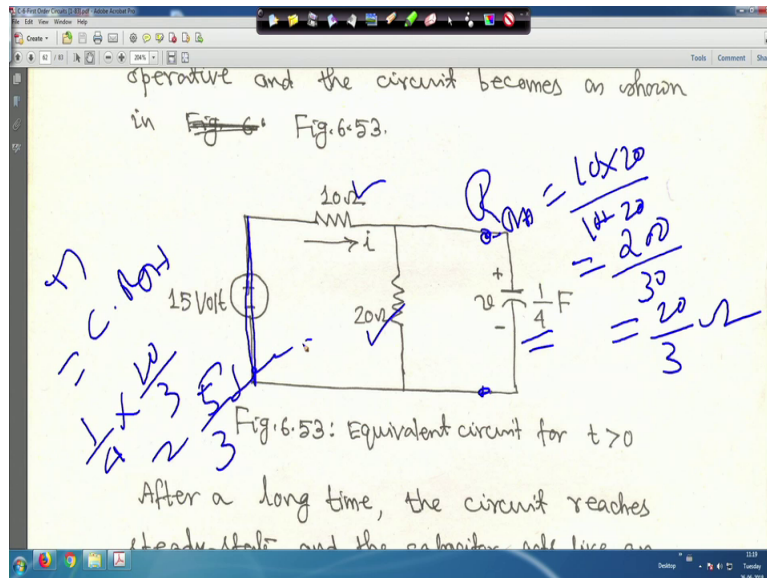 C-6-First Order Circuits [1-83].pdf - Adobe Acrobat Pro
File Edit View Window Help
Create
62 / 83 204%
Tools Comment
operative and the circuit becomes as shown
in Fig.6.53.
10Ω
i
15 Volt
20Ω
+
v
-
1/4 F
= 10×20
10+20
= 200
30
= 20
3 Ω
τ
=
1/4 × 20/3
5
3
Fig.6.53: Equivalent circuit for t>0
After a long time, the circuit reaches
steady-state and the capacitor acts like an
Desktop
11:19
Tuesday